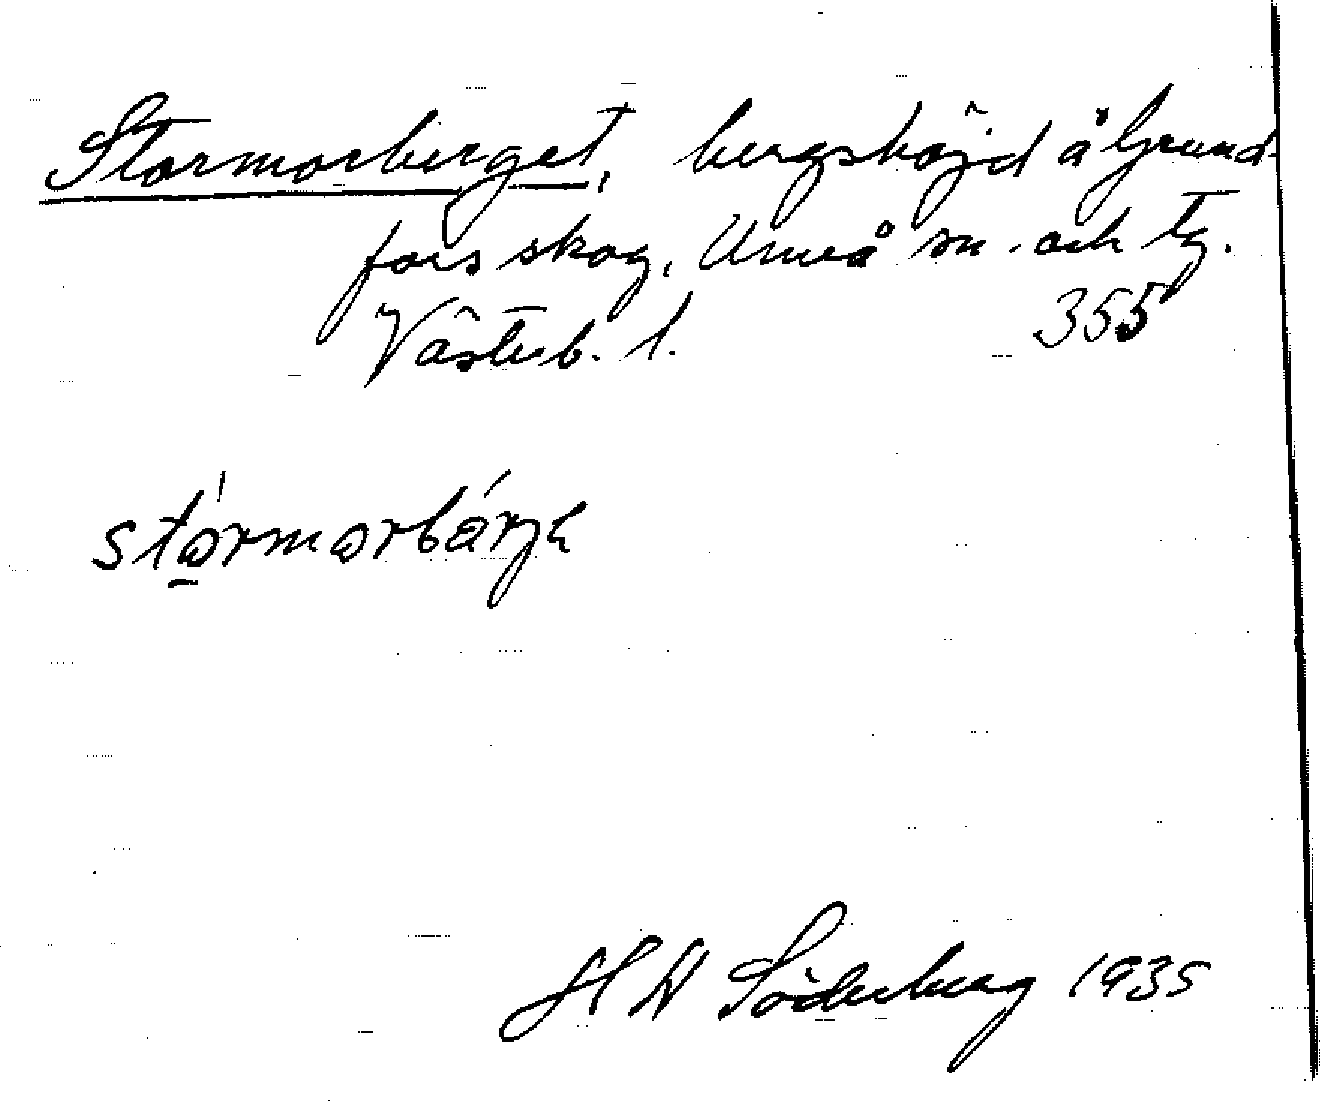 Stormorberget, bergshöjd å Grund-
fors skog, Umeå sn. och tg.
Västerb. l. 355
stormorbárje
H W Söderberg 1935